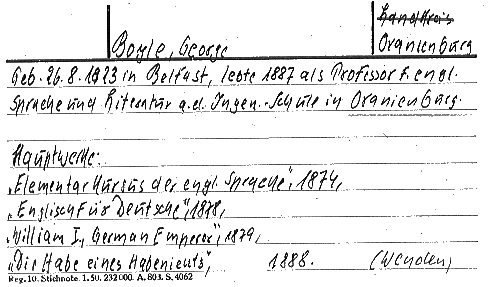 Landkreis
Boyle, George Oranienburg
Geb. 26.8.1823 in Belfast, lebte 1887 als Professor f. engl.
Sprache und Literatur a.d. Ingen.-Schule in Oranienburg.
Hauptwerke:
„Elementarkursus der engl. Sprache", 1874,
„Englisch für Deutsche", 1878,
„William I., German Emperor", 1879,
„Die Habe eines Habenieuts", 1888. (Wenden)
Reg. 10. Stichnote. 1. 50. 232000. A. 803. S. 4062